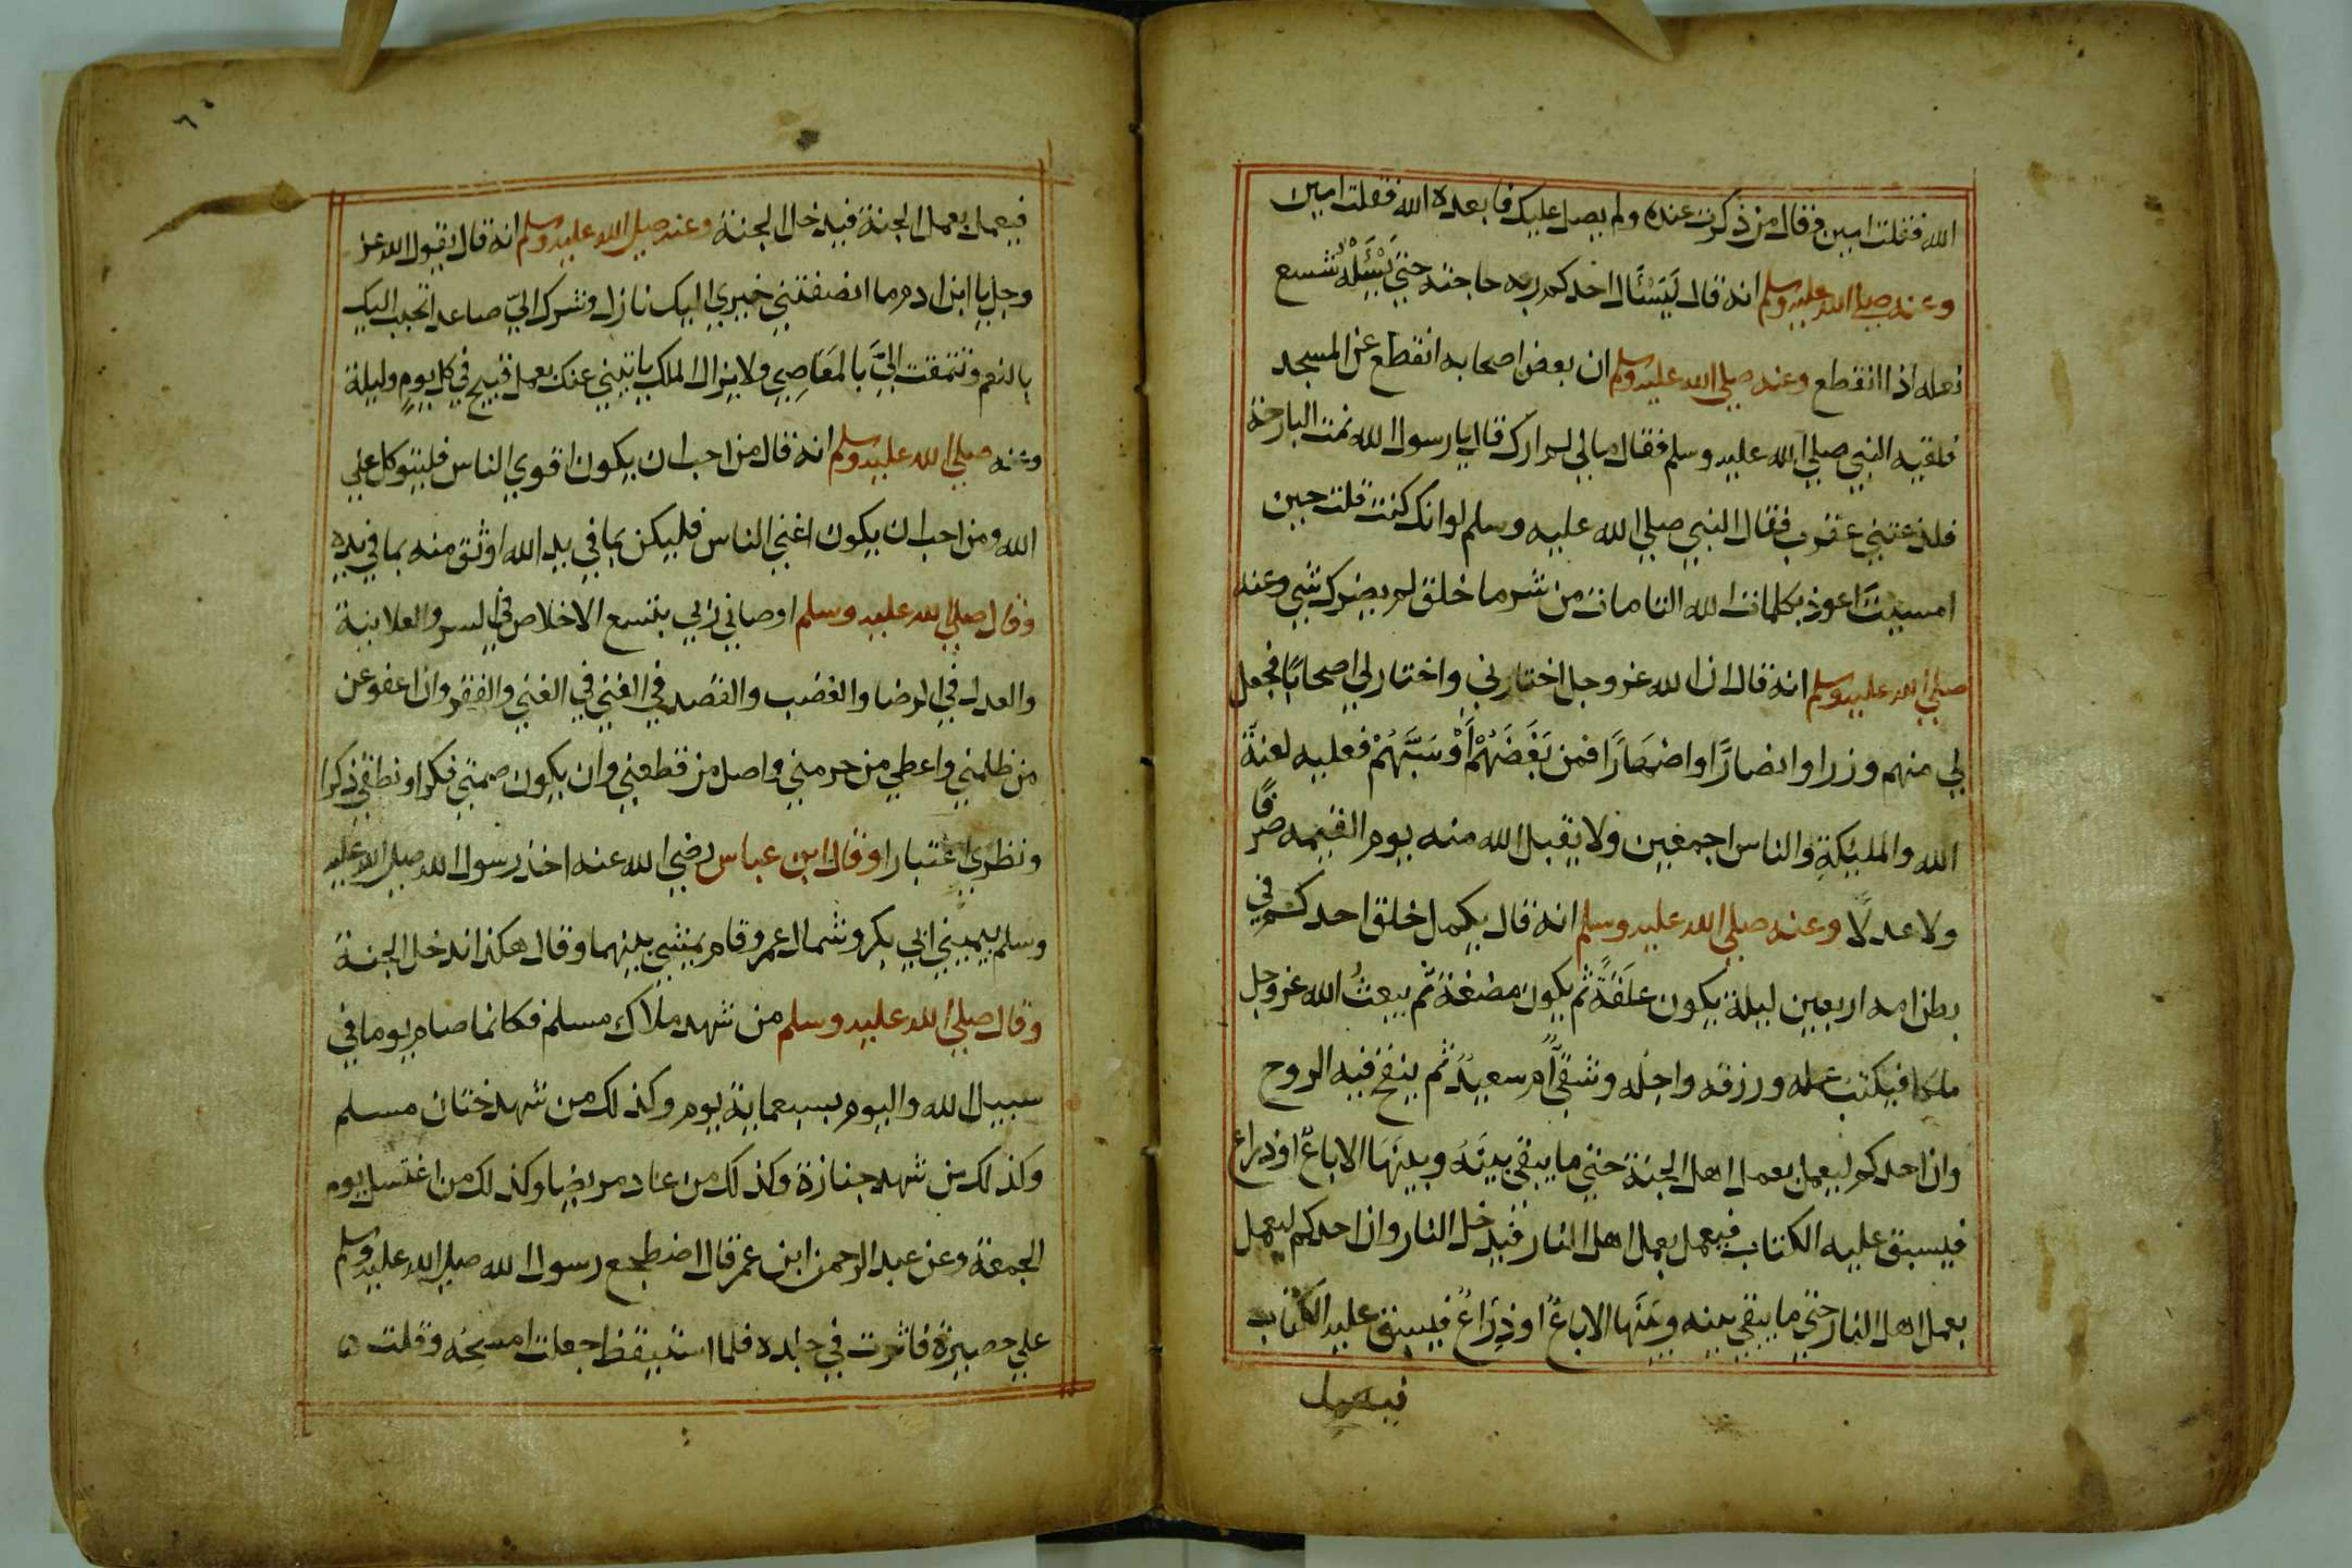 الله فقلت امين فقال من ذكرت عنده ولم يصل عليك فابعده الله فقلت امين
وعنه صلي الله عليه وسلم انه قال لَيَسْئَال احدكم ربه حاجته حتي يَسْئَلْهُ شسع
نعله اذا انقطع وعنه صلي الله عليه وسلم ان بعض اصحابه انقطع عن المسجد
فلقيه النبي صلي الله عليه وسلم فقال مالي لم ارك قال يا رسول الله نمت البارحة
فلذغتني عقرب فقال النبي صلي الله عليه وسلم لو انك كنت قلت حين
امسيت اعوذ بكلمات الله التامات من شر ما خلق لم يضرك شي وعنه
صلي الله عليه وسلم انه قال ان الله عز وجل اختارني واختار لي اصحابًا فجعل
لي منهم وزرا وانصارًا واصهارًا فمن بَغَضَهُمْ أَوْ سَبَّهُمْ فعليه لعنة
الله والمليكةِ والناس اجمعين ولا يقبل الله منه يوم القيمه صرفًا
ولا عدلًا وعنه صلي الله عليه وسلم انه قال يكمل خلق احدكم في
بطن امه اربعين ليلة يكون علقةً ثم يكون مضغة ثم يبعثُ الله عز وجل
ملكا فيكتب عمله ورزقه واجله وشقيٌّ ام سعيدٌ ثم ينفخ فيه الروح
وان احدكم ليعمل بعمل اهل الجنة حتي ما يبقي بينَهُ وبينَهَا الا باعٌ او ذراع
فيسبق عليه الكتاب فيعمل بعمل اهل النار فيدخل النار وان احدكم ليعمل
بعمل اهل النار حتي ما يبقي بينه وبينَهَا الا باعٌ او ذِرَاعٌ فيسبق عليه الكتاب
فيعمل
٦٠
فيعمل بعمل الجنة فيدخل الجنة وعنه صلي الله عليه وسلم انه قال يقول الله عز
وجل يا ابن ادم ما انصفتني خيري اليك نازل وشرك اليّ صاعد اتحبب اليك
بالنعم وتتمقت اليَّ بالمَعَاصِي ولا يزال الملك ياتيني عنك بعمل قبيح في كل يومٍ وليلة
وعنه صلي الله عليه وسلم انه قال من احب ان يكون اقوي الناس فليتوكل علي
الله ومن احب ان يكون اغني الناس فليكن بما في يد الله اوثق منه بما في يده
وقال صلي الله عليه وسلم اوصاني ربي بتسع الاخلاص في السر والعلانية
والعدل في الرضا والغضب والقصد في الغني في الغني والفقر وان اعفو عن
من ظلمني واعطي من حرمني واصل من قطعني وان يكون صمتي فكرا ونطقي ذكرا
ونظري اعتبارا وقال ابن عباس رضي الله عنه اخذ رسول الله صلي الله عليه
وسلم بيميني ابي بكر وشمال عمر وقام يمشي بينهما وقال هكذا ندخل الجنة
وقال صلي الله عليه وسلم من شهد ملاك مسلم فكانما صام يوما في
سبيل الله واليوم بسبعماية يوم وكذلك من شهد ختان مسلم
وكذلك من شهد جنازة وكذلك من عاد مريضا وكذلك من اغتسل يوم
الجمعة وعن عبد الرحمن ابن عمر قال اضطجع رسول الله صلي الله عليه وسلم
علي حصيرة فاثرت في جلده فلما استيقظ جعلت امسحه وقلت ٥